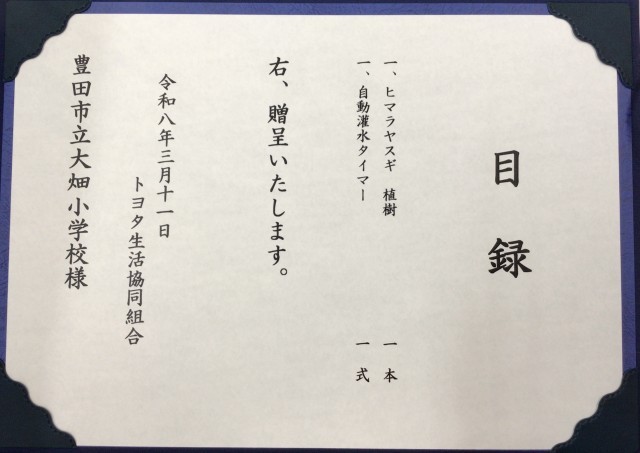 目録
一、ヒマラヤスギ 植樹 一本
一、自動灌水タイマー 一式
右、贈呈いたします。
令和八年三月十一日
トヨタ生活協同組合
豊田市立大畑小学校様